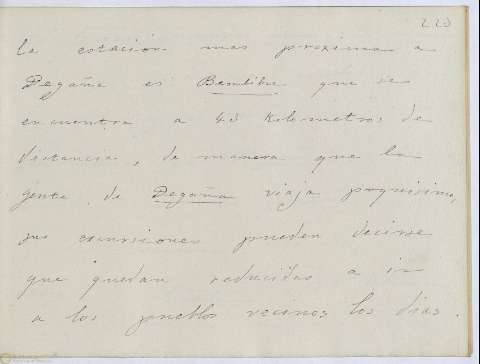 223
la estación mas proxima a
Degaña es Bembibre que se
encuentra a 48 kilometros de
distancia, de manera que la
gente de Degaña viaja poquisimo,
sus excursiones pueden decirse
que quedan reducidas a ir
a los pueblos vecinos los dias